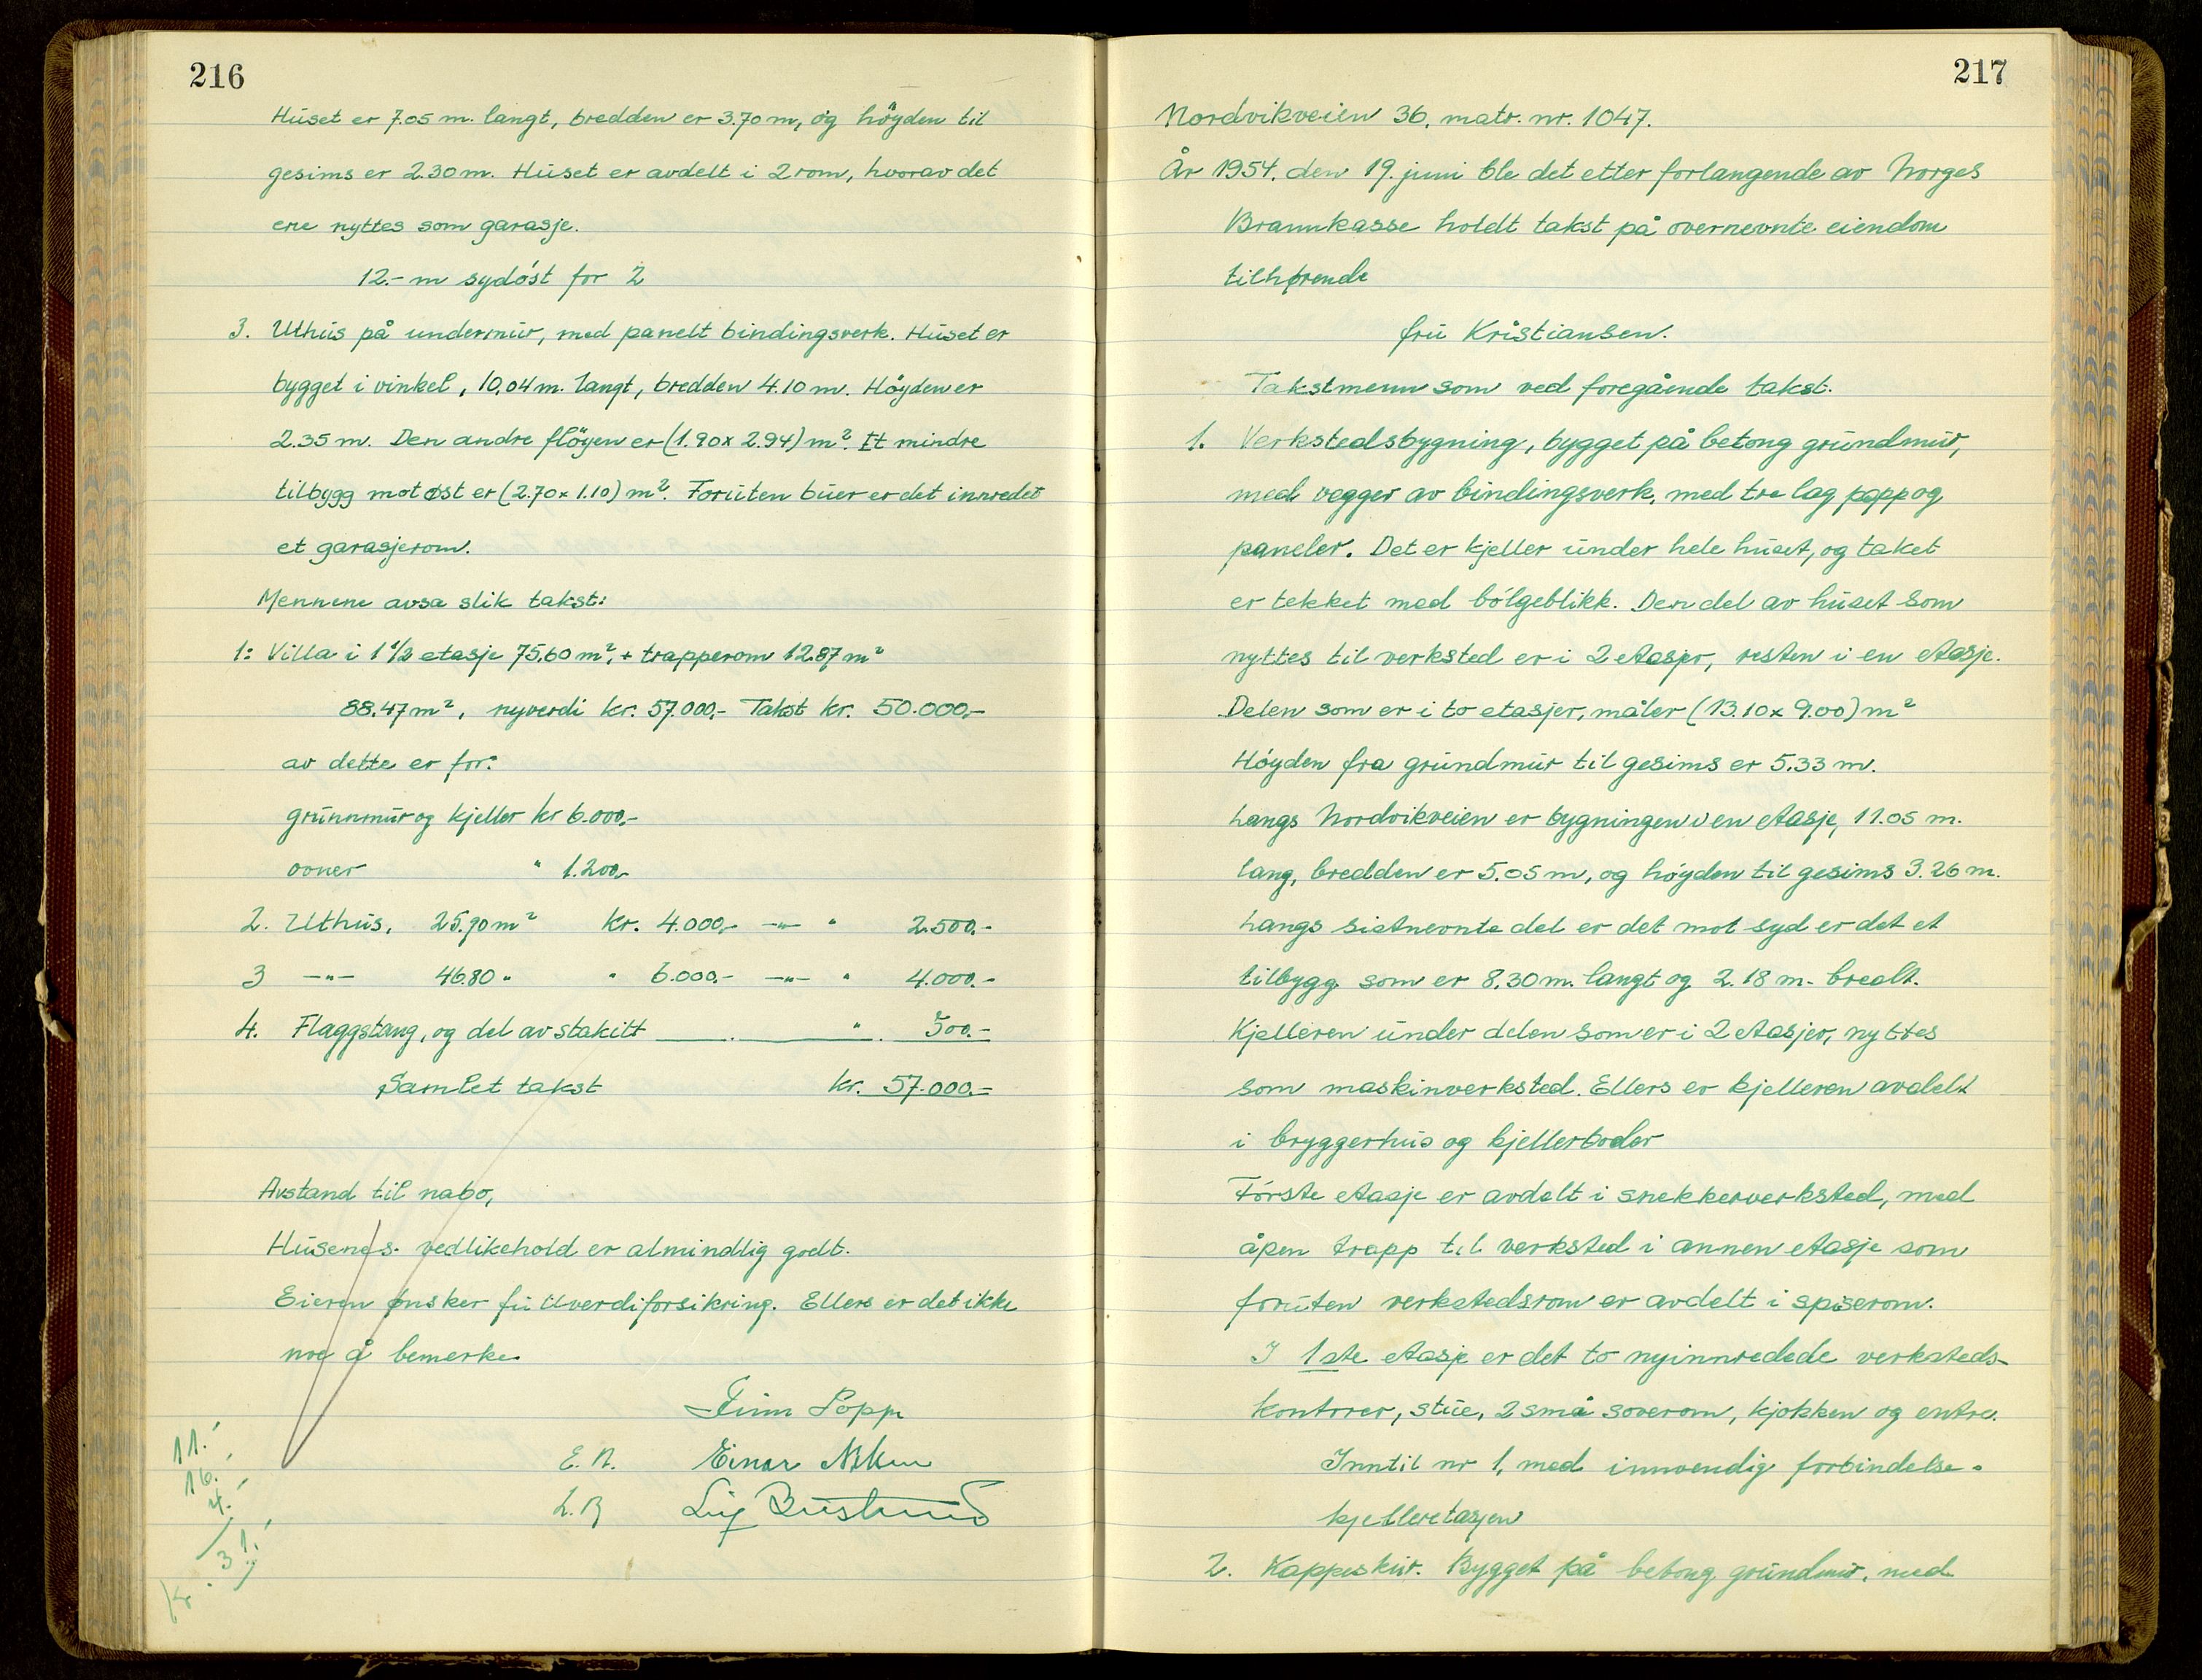 216
Huset er 7.05 m. langt, bredden er 3.70 m, og höyden til
gesims er 2.30 m. Huset er avdelt i 2 rom, hvorav det
ene nyttes som garasje.
12.- m sydöst for 2
3. Uthus på undermur, med panelt bindingsverk. Huset er
bygget i vinkel, 10,04 m. langt, bredden 4.10 m. Höyden er
2.35 m. Den andre flöyen er (1.90 x 2.94) m². Et mindre
tilbygg mot øst er (2.70 x 1.10) m². Foruten buer er det innredet
et garasjerom.
Mennene avsa slik takst:
1: Villa i 1 1/2 etasje 75,60 m², + trapperom 12.87 m²
88.47 m², nyverdi kr. 57.000,- Takst kr. 50.000,-
av dette er for:
grunnmur og kjeller kr 6.000,-
ovner " 1.200,-
2. Uthus, 25.90 m² kr. 4.000,- -"- " 2.500.-
3 -"- 46.80 " " 6.000.- -"- " 4.000.-
4. Flaggstang, og del av stakitt " 500.-
Samlet takst kr. 57.000.-
Avstand til nabo,
Husenes vedlikehold er almindlig godt.
Eieren ønsker fullverdiforsikring. Ellers er det ikke
noe å bemerke
Finn Popp
E. N. Einar
L. B
11.-
16.-
4.-
Kr. 31.-
217
Nordvikveien 36, matr. nr. 1047.
År 1954, den 19. juni ble det etter forlangende av Norges
Brannkasse holdt takst på overnevnte eiendom
tilhørende
fru Kristiansen.
Takstmenn som ved foregående takst.
1. Verkstedsbygning, bygget på betong grundmur,
med vegger av bindingsverk, med tre lag papp og
paneler. Det er kjeller under hele huset, og taket
er tekket med bölgeblikk. Den del av huset som
nyttes til verksted er i 2 etasjer, resten i en etasje.
Delen som er i to etasjer, måler (13.10 x 9.00) m²
Höyden fra grundmur til gesims er 5.33 m.
Langs Nordvikveien er bygningen i en etasje, 11.05 m.
lang, bredden er 5.05 m, og höyden til gesims 3.26 m.
Langs sistnevnte del er det mot syd er det et
tilbygg som er 8.30 m. langt og 2.18 m. bredt.
Kjelleren under delen som er i 2 etasjer, nyttes
som maskinverksted. Ellers er kjelleren avdelt
i bryggerhus og kjellerboder
Förste etasje er avdelt i snekkerverksted, med
åpen trapp til verksted i annen etasje som
foruten verkstedsrom er avdelt i spiserom.
I 1ste etasje er det to nyinnredede verksteds-
kontorer, stue, 2 små soverom, kjøkken og entre.
Inntil nr 1, med innvendig forbindelse.
kjelleretasjen
2. Kappeskur. Bygget på betong grundmur, med